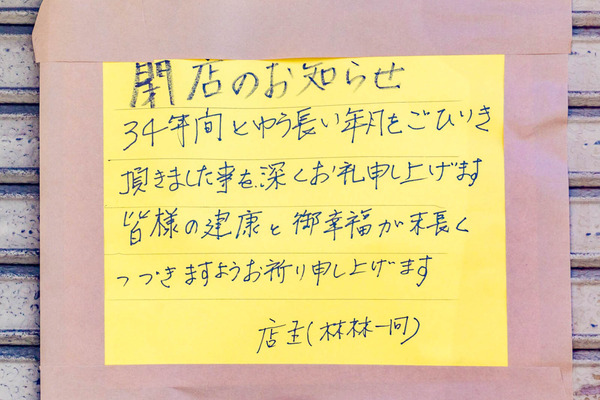 閉店のお知らせ
34年間とゆう長い年月をごひいき
頂きました事を、深くお礼申し上げます
皆様の健康と御幸福が末長く
つづきますようお祈り申し上げます
店主(林林一同)